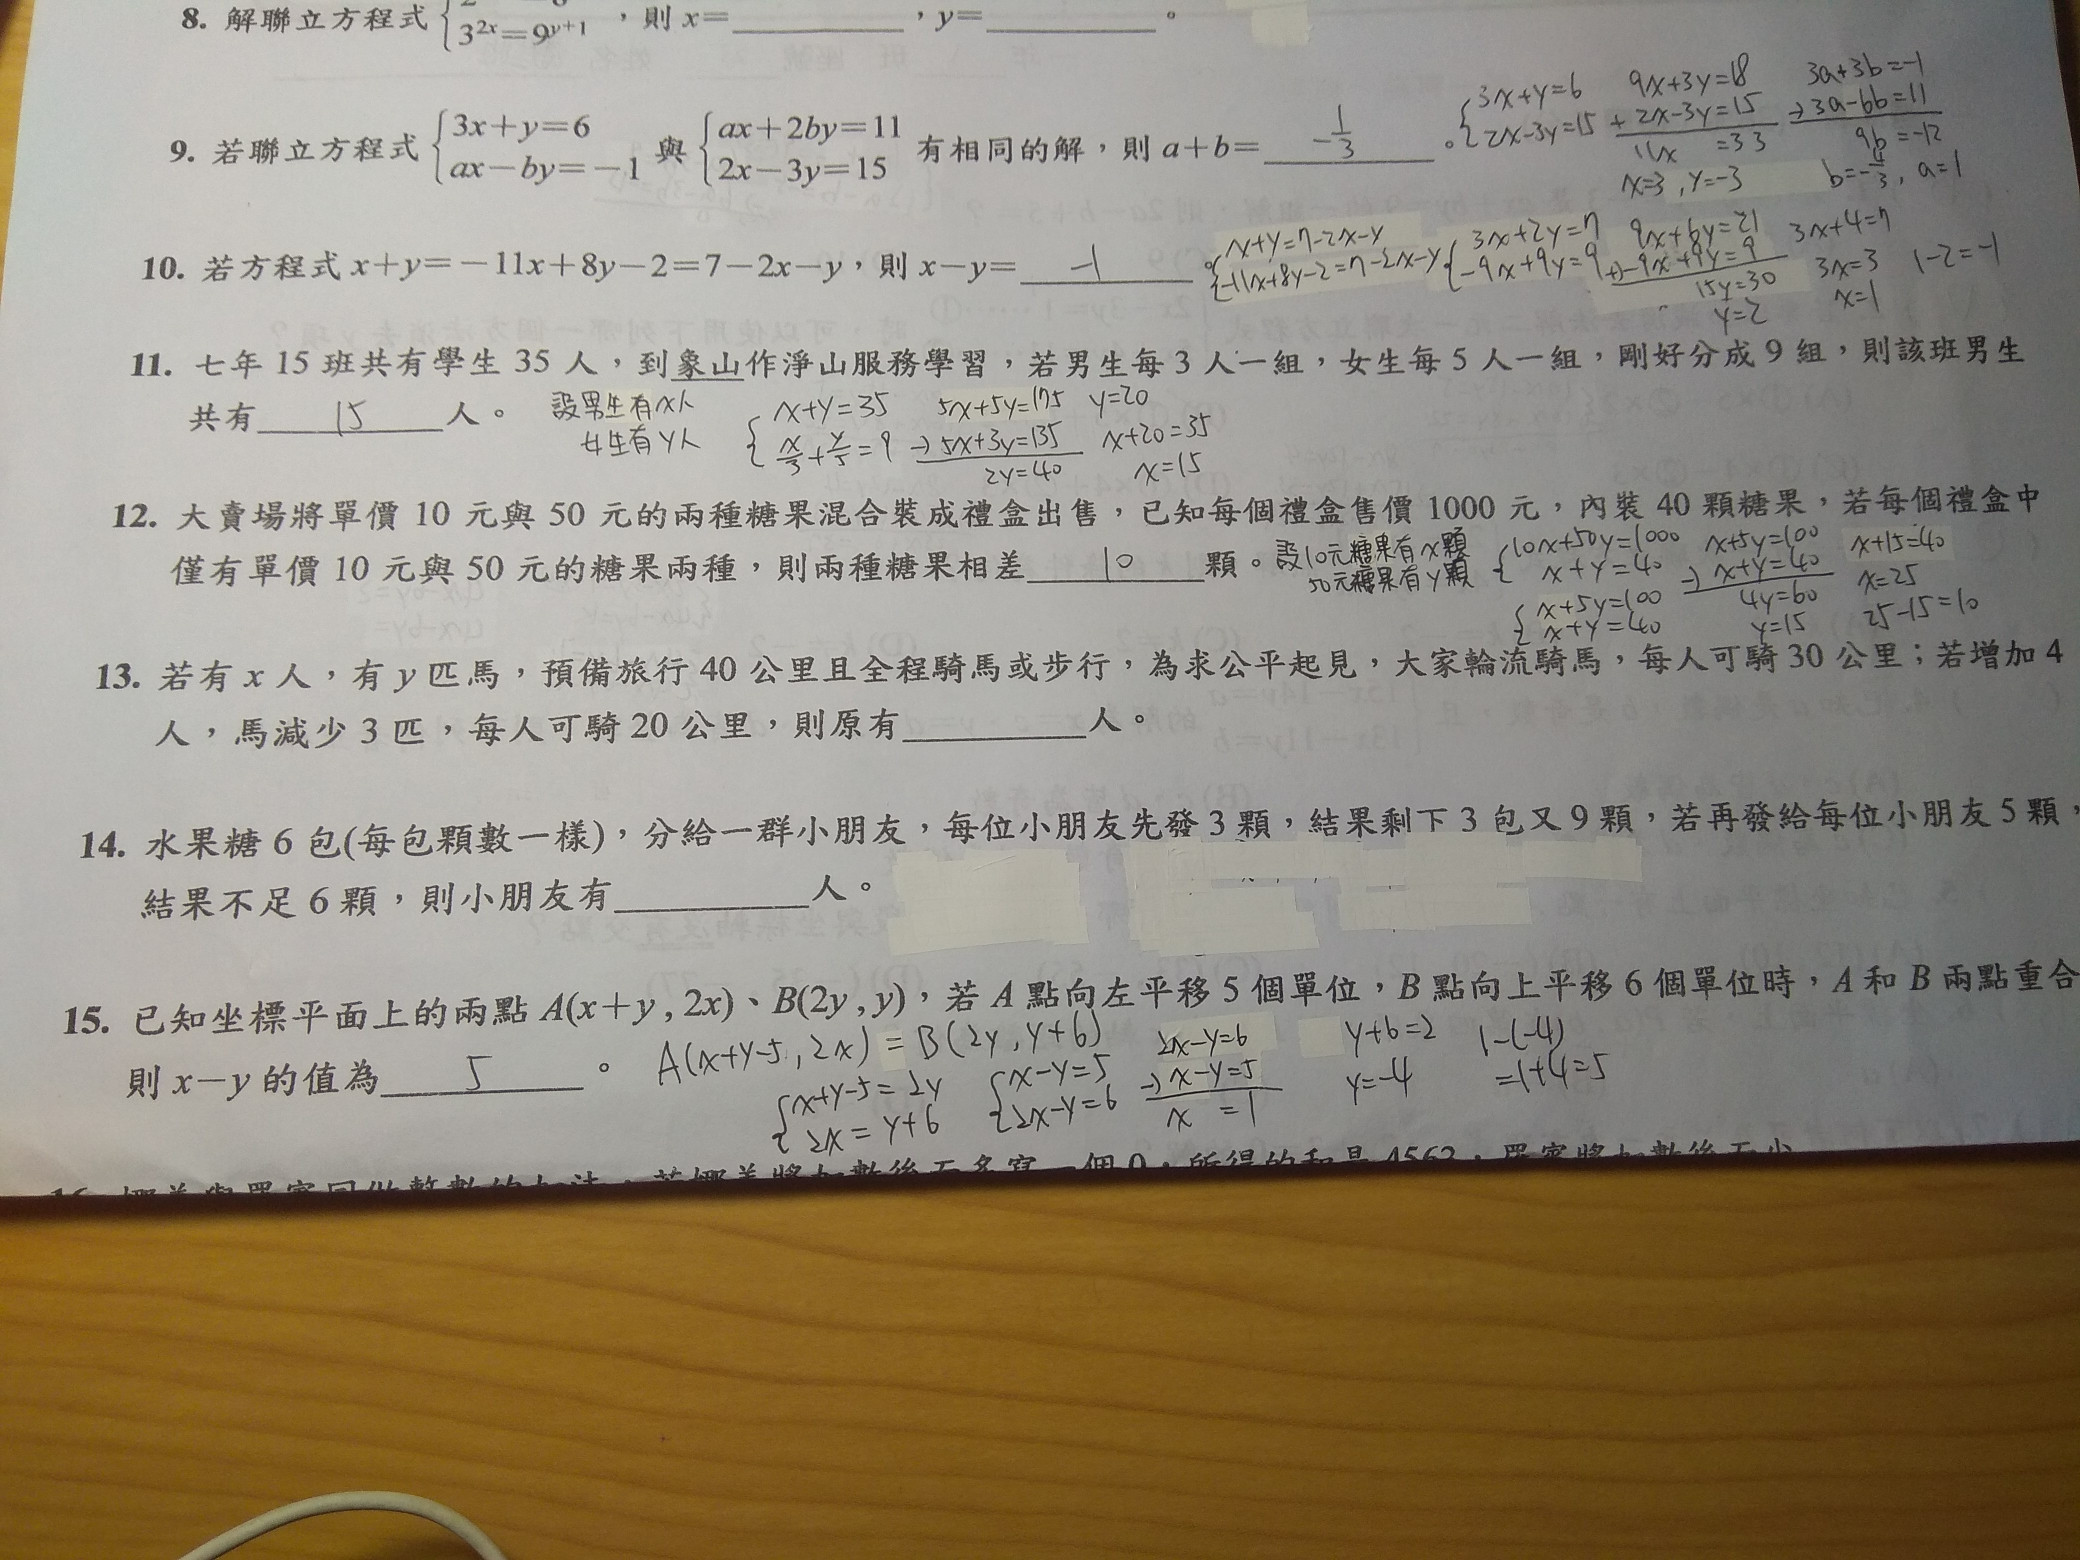 8. 解聯立方程式 3^{2x}=9^{y+1} ,則 x=______,y=______。
9. 若聯立方程式 {3x+y=6 ax-by=-1 與 {ax+2by=11 2x-3y=15 有相同的解,則 a+b= -1/3 。
{3x+y=6 2x-3y=15
9x+3y=18
+ 2x-3y=15
11x =33
x=3, y=-3
3a+3b=-1
-) 3a-6b=11
9b=-12
b=-4/3, a=1
10. 若方程式 x+y=-11x+8y-2=7-2x-y,則 x-y= -1 。
{x+y=7-2x-y
-11x+8y-2=7-2x-y
{3x+2y=7
-9x+9y=9
9x+6y=21
+) -9x+9y=9
15y=30
y=2
3x+4=7
3x=3
x=1
1-2=-1
11. 七年 15 班共有學生 35 人,到象山作淨山服務學習,若男生每 3 人一組,女生每 5 人一組,剛好分成 9 組,則該班男生
共有 15 人。
設男生有x人
女生有y人
{x+y=35
x/3+y/5=9
5x+5y=175
-) 5x+3y=135
2y=40
y=20
x+20=35
x=15
12. 大賣場將單價 10 元與 50 元的兩種糖果混合裝成禮盒出售,已知每個禮盒售價 1000 元,內裝 40 顆糖果,若每個禮盒中
僅有單價 10 元與 50 元的糖果兩種,則兩種糖果相差 10 顆。
設10元糖果有x顆
50元糖果有y顆
{10x+50y=1000
x+y=40
{x+5y=100
x+y=40
x+5y=100
-) x+y=40
4y=60
y=15
x+15=40
x=25
25-15=10
13. 若有 x 人,有 y 匹馬,預備旅行 40 公里且全程騎馬或步行,為求公平起見,大家輪流騎馬,每人可騎 30 公里;若增加 4
人,馬減少 3 匹,每人可騎 20 公里,則原有______人。
14. 水果糖 6 包(每包顆數一樣),分給一群小朋友,每位小朋友先發 3 顆,結果剩下 3 包又 9 顆,若再發給每位小朋友 5 顆,
結果不足 6 顆,則小朋友有______人。
15. 已知坐標平面上的兩點 A(x+y , 2x)、B(2y , y),若 A 點向左平移 5 個單位,B 點向上平移 6 個單位時,A 和 B 兩點重合
則 x-y 的值為 5 。
A(x+y-5, 2x)=B(2y, y+6)
{x+y-5=2y
2x=y+6
{x-y=5
2x-y=6
2x-y=6
-) x-y=5
x =1
y+6=2
y=-4
1-(-4)
=1+4=5